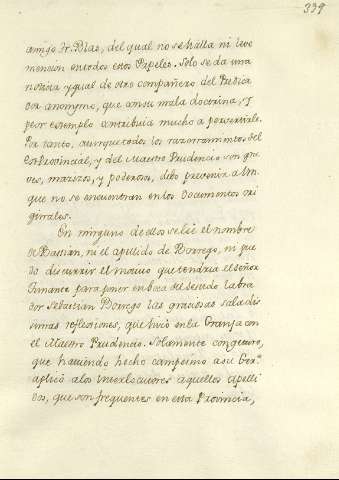 339
amigo Fr. Blas, del qual no se halla ni leve
mencion en todos estos Papeles. Solo se da una
noticia ygual de otro compañero del Predica
dor anonymo, que con su mala doctrina, y
peor exemplo contribuia mucho a pervertirle.
Por tanto, aunque todos los razonamientos del
ExProvincial, y del Maestro Prudencio son gra
ves, mazizos, y poderosos, debo prevenir a Vm.
que no se encuentran en los Documentos ori
ginales.
En ninguno de ellos se lee el nombre
de Bastian, ni el apellido de Borrego, ni pue
do discurrir el motivo que tendria el señor
para poner en boca del sesudo Labra
dor Sebastian Borrego las graciosas saladis
simas reflexiones, que hizo en la Granja con
el Maestro Prudencio. Solamente congeturo,
que haviendo hecho campesino a su Her.º
aplicò a los Interlocutores aquellos apelli
dos, que son frequentes en esta Provincia,